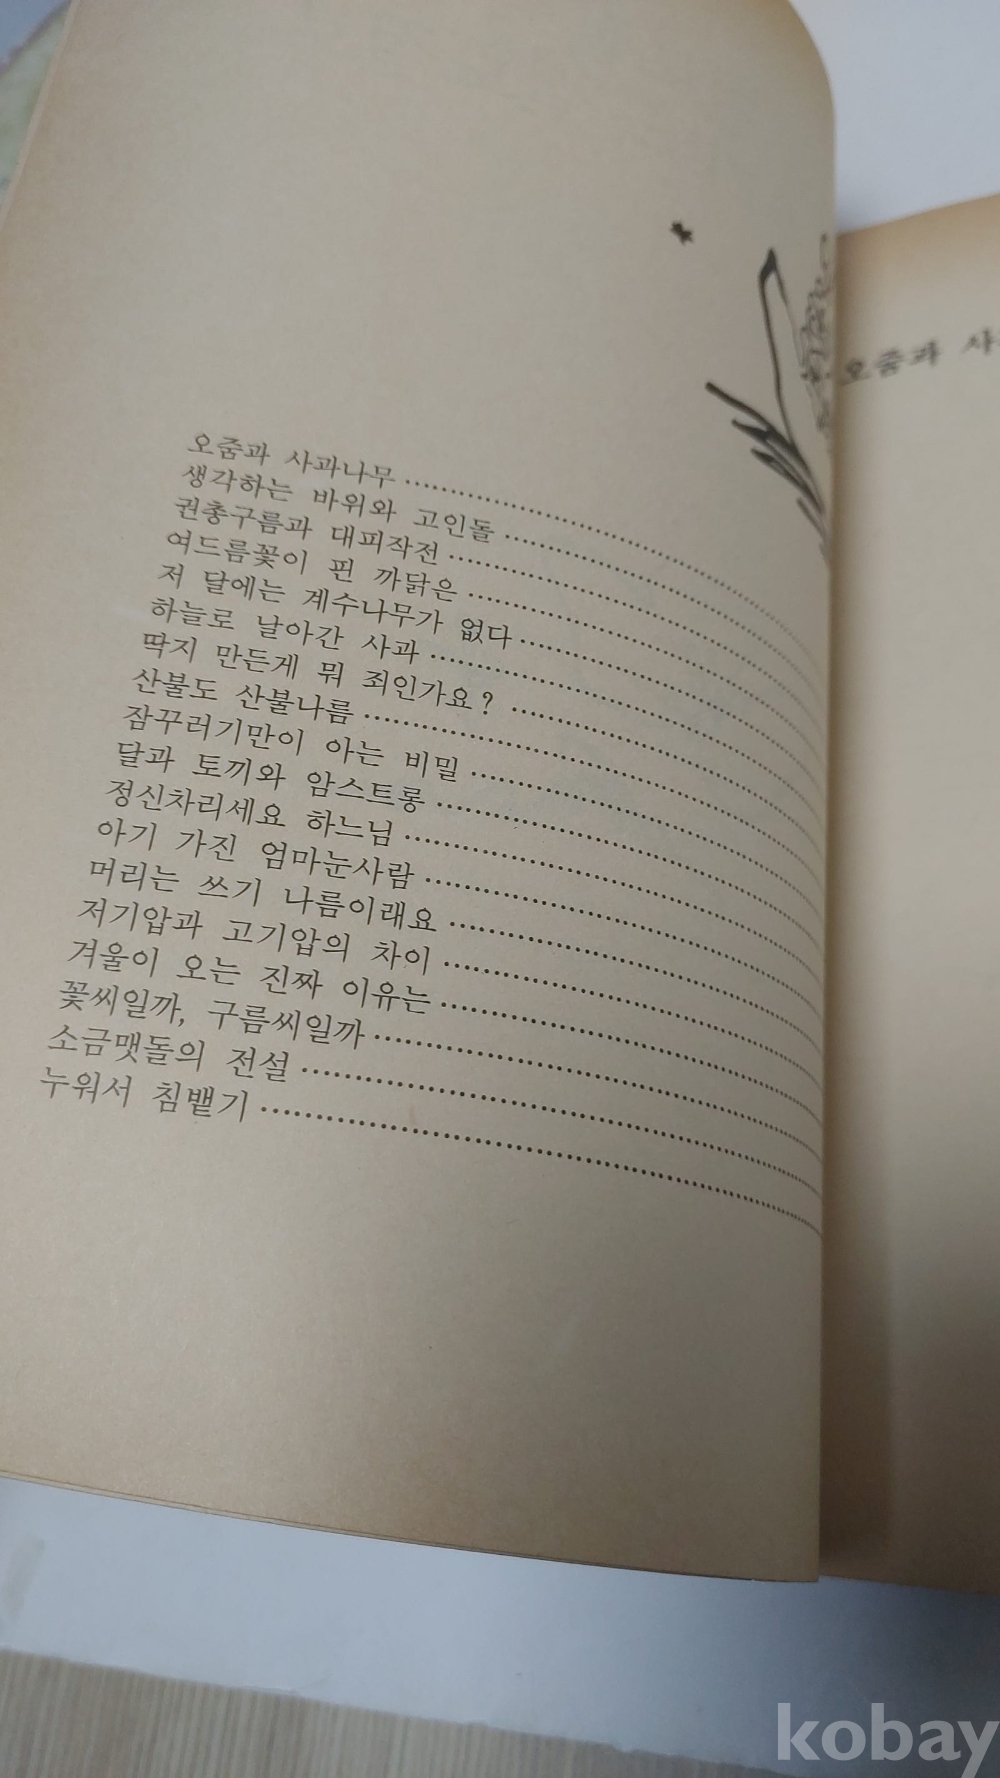 오줌과 사과나무
생각하는 바위와 고인돌
권총구름과 대피작전
여드름꽃이 핀 까닭은
저 달에는 계수나무가 없다
하늘로 날아간 사과
딱지 만든게 뭐 죄인가요?
산불도 산불나름
잠꾸러기만이 아는 비밀
달과 토끼와 암스트롱
정신차리세요 하느님
아기 가진 엄마눈사람
머리는 쓰기 나름이래요
저기압과 고기압의 차이
겨울이 오는 진짜 이유는
꽃씨일까, 구름씨일까
소금맷돌의 전설
누워서 침뱉기
오줌과 사
kobay